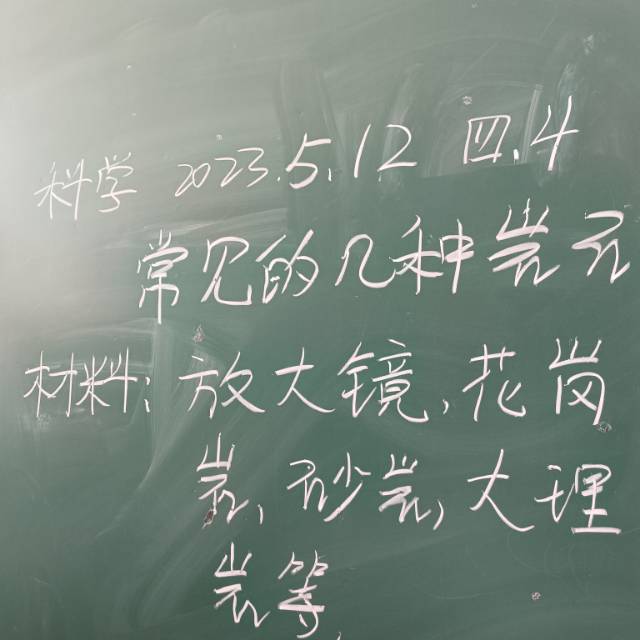 科学 2023.5.12 四.4
常见的几种岩石
材料：放大镜，花岗
岩，砂岩，大理
岩等